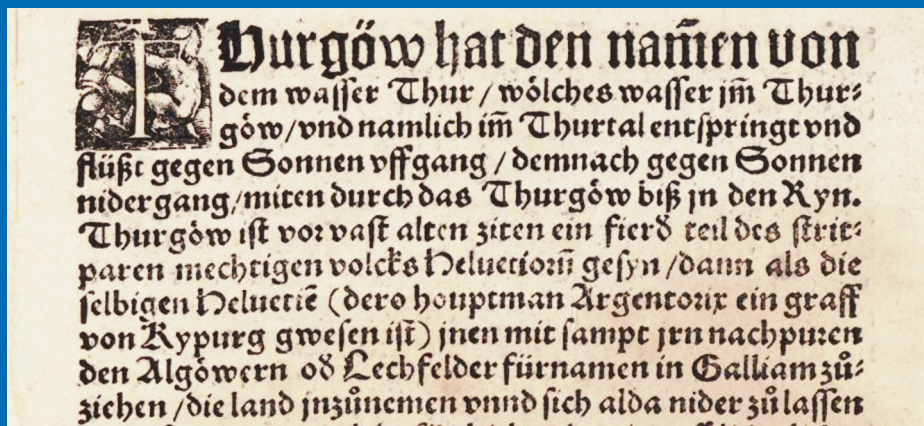 THurgöw hat den nam̃en von
dem wasser Thur / wölches wasser jm̃ Thur⸗
göw / vnd namlich im̃ Thurtal entspringt vnd
flüßt gegen Sonnen vffgang / demnach gegen Sonnen
nidergang / miten durch das Thurgöw biß jn den Ryn.
Thurgöw ist vor vast alten ziten ein fierd teil des strit⸗
paren mechtigen volcks Heluetiorũ gesyn / dann als die
selbigen Heluetiẽ (dero houptman Argentorix ein graff
von Kypurg gwesen ist) jnen mit sampt jrn nachpuren
den Algöwern od̕ Lechfelder fürnamen in Galliam zů⸗
ziehen / die land jnzůnemen vnnd sich alda nider zů lassen